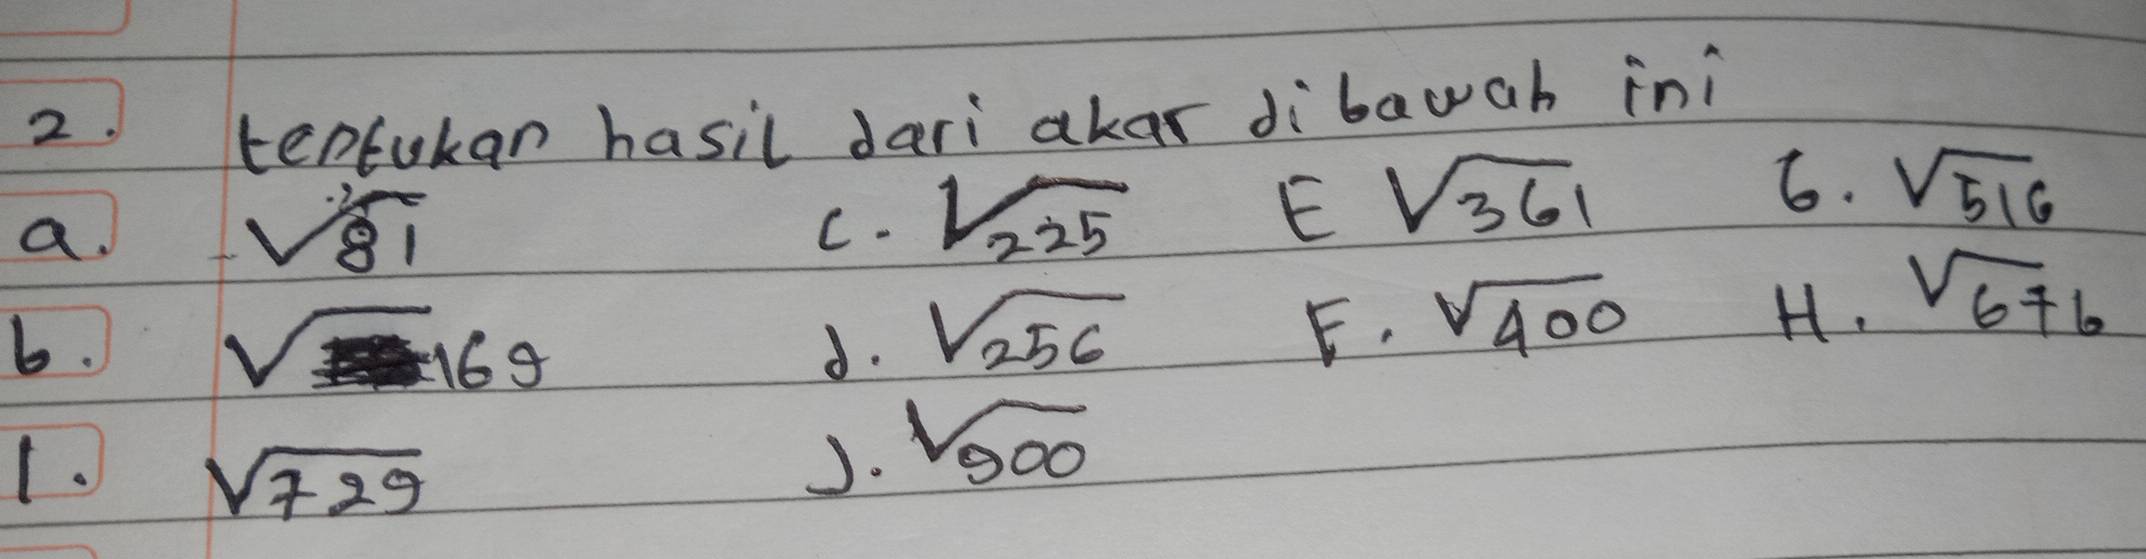 2. tentukan hasil dari akar di bawah ini
a. √81 c. √225 E √361 G. √516
b. √169 d. √256 F. √400 H. √676
I. √729 J. √900